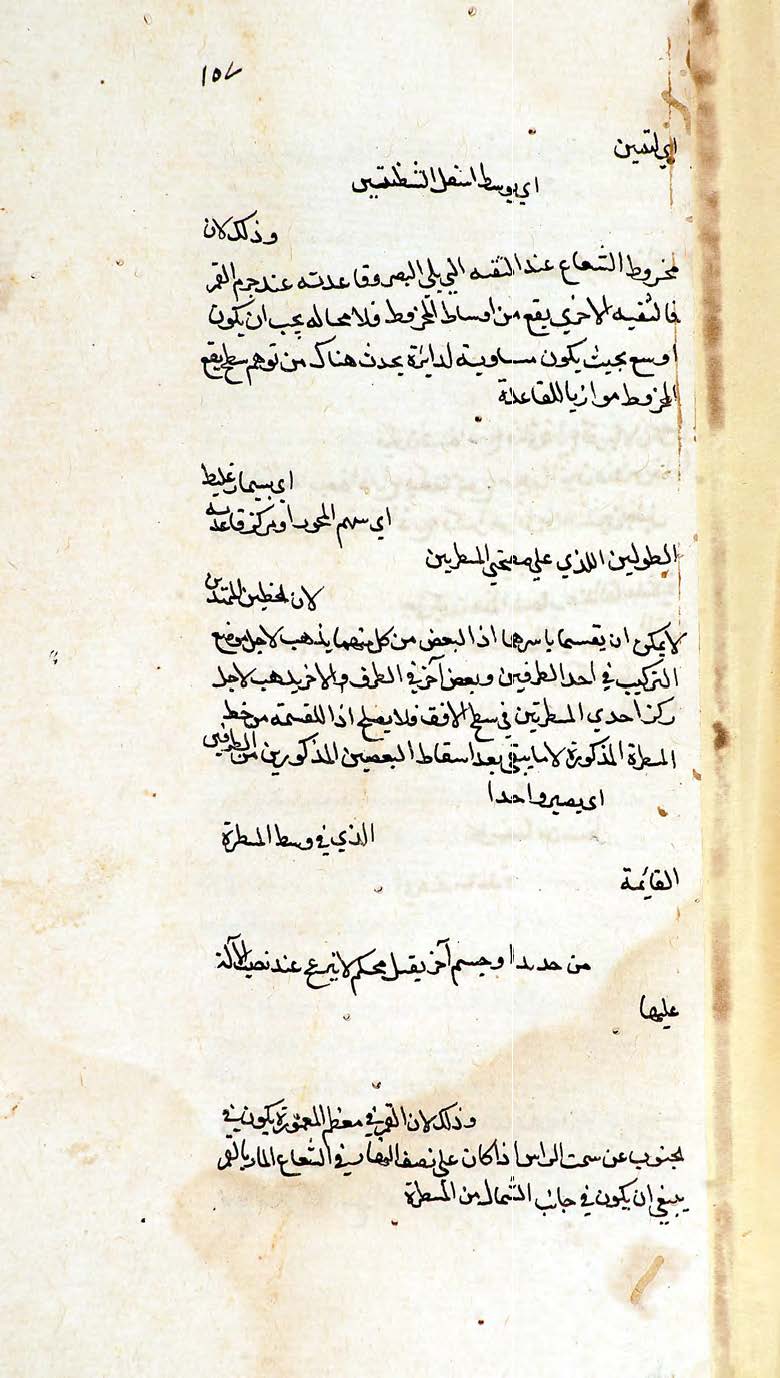 ١٥٧
اي لتبين
اي بوسط اسفل الشظيتين
وذلك لان
مخروط الشعاع عند الثقبه التي يلي البصر وقاعدته عند جرم القمر
فالثقبه الاخري يقع من اوساط المخروط فلا محاله يجب ان يكون
اوسع بحيث يكون مساوية لدائرة يحدث هناك من توهم سطح يقع
المخروط موازيا للقاعدة
اي بسمار غليظ
اي سهم المحور او مركز قاعدته
الطولين اللذي علي صفحتي المسطرتين
لان الخطين الممتدين
لا يمكن ان تقسما باسرهما اذ البعض من كل منهما يذهب لاجل موضع
التركيب في احد الطرفين وبعض آخر في الطرف الاخر يذهب لاجل
ركز احدي المسطرتين في سطح الافق فلا يصلح اذا للقسمة من خط
المسطرة المذكورة الا ما يبقي بعد اسقاط البعضين المذكورين من الطرفين
اي يصير واحدا
الذي في وسط المسطرة
القايمة
من حديد او جسم آخر ثقيل محكم لا عند نصب الآلة
عليها
وذلك لان القمر في معظم المعمورة يكون في
الجنوب عن سمت الراس اذا كان علي نصف النهار في الشعاع المار بالقمر
ينبغي ان يكون في جانب الشمال من المسطرة